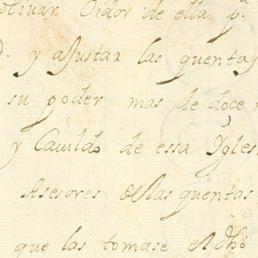 olivar Oidor de ella p.ª
y ajustar las quentas
su poder mas de doçe
y Cavildo de essa Yglesi
Asesores de las quentas
que las tomase el dho